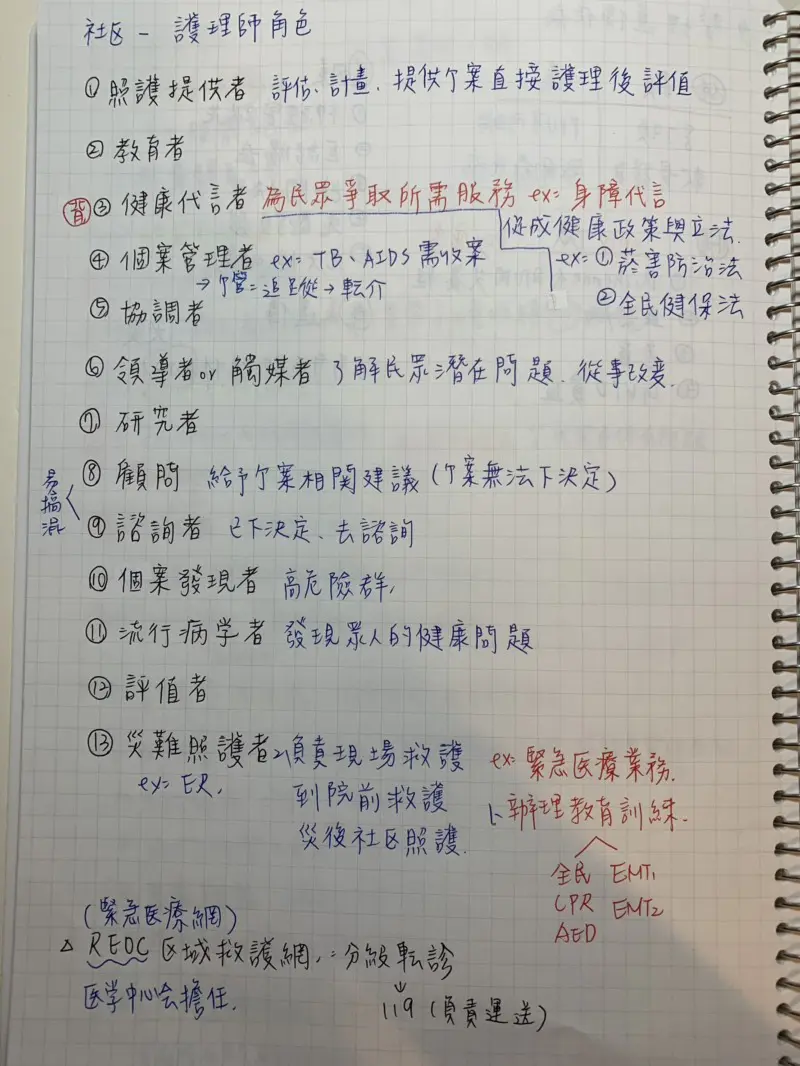 社区 - 護理師角色
① 照護提供者 評估、計畫、提供个案直接護理後評值
② 教育者
背 ③ 健康代言者 為民眾爭取所需服務 ex= 身障代言
促成健康政策與立法.
ex= ① 菸害防治法
② 全民健保法
④ 個案管理者 ex= TB、AIDS 需收案
→ 个管= 追蹤 → 転介
⑤ 協調者
⑥ 領導者or 觸媒者 了解民眾潛在問題. 從事改变.
⑦ 研究者
易搞混
⑧ 顧問 給予个案相関建議 (个案無法下決定)
⑨ 諮詢者 已下決定、去諮詢
⑩ 個案發現者 高危險群,
⑪ 流行病学者 發現眾人的健康問題
⑫ 評值者
⑬ 災難照護者 負責現場救護
ex= ER.
到院前救護
災後社区照護.
ex= 緊急医療業務.
辦理教育訓練.
全民 EMT1
CPR EMT2
AED
(緊急医療網)
△ REOC 区域救護網, = 分級転診
医学中心会擔任.
↓
119 (負責運送)